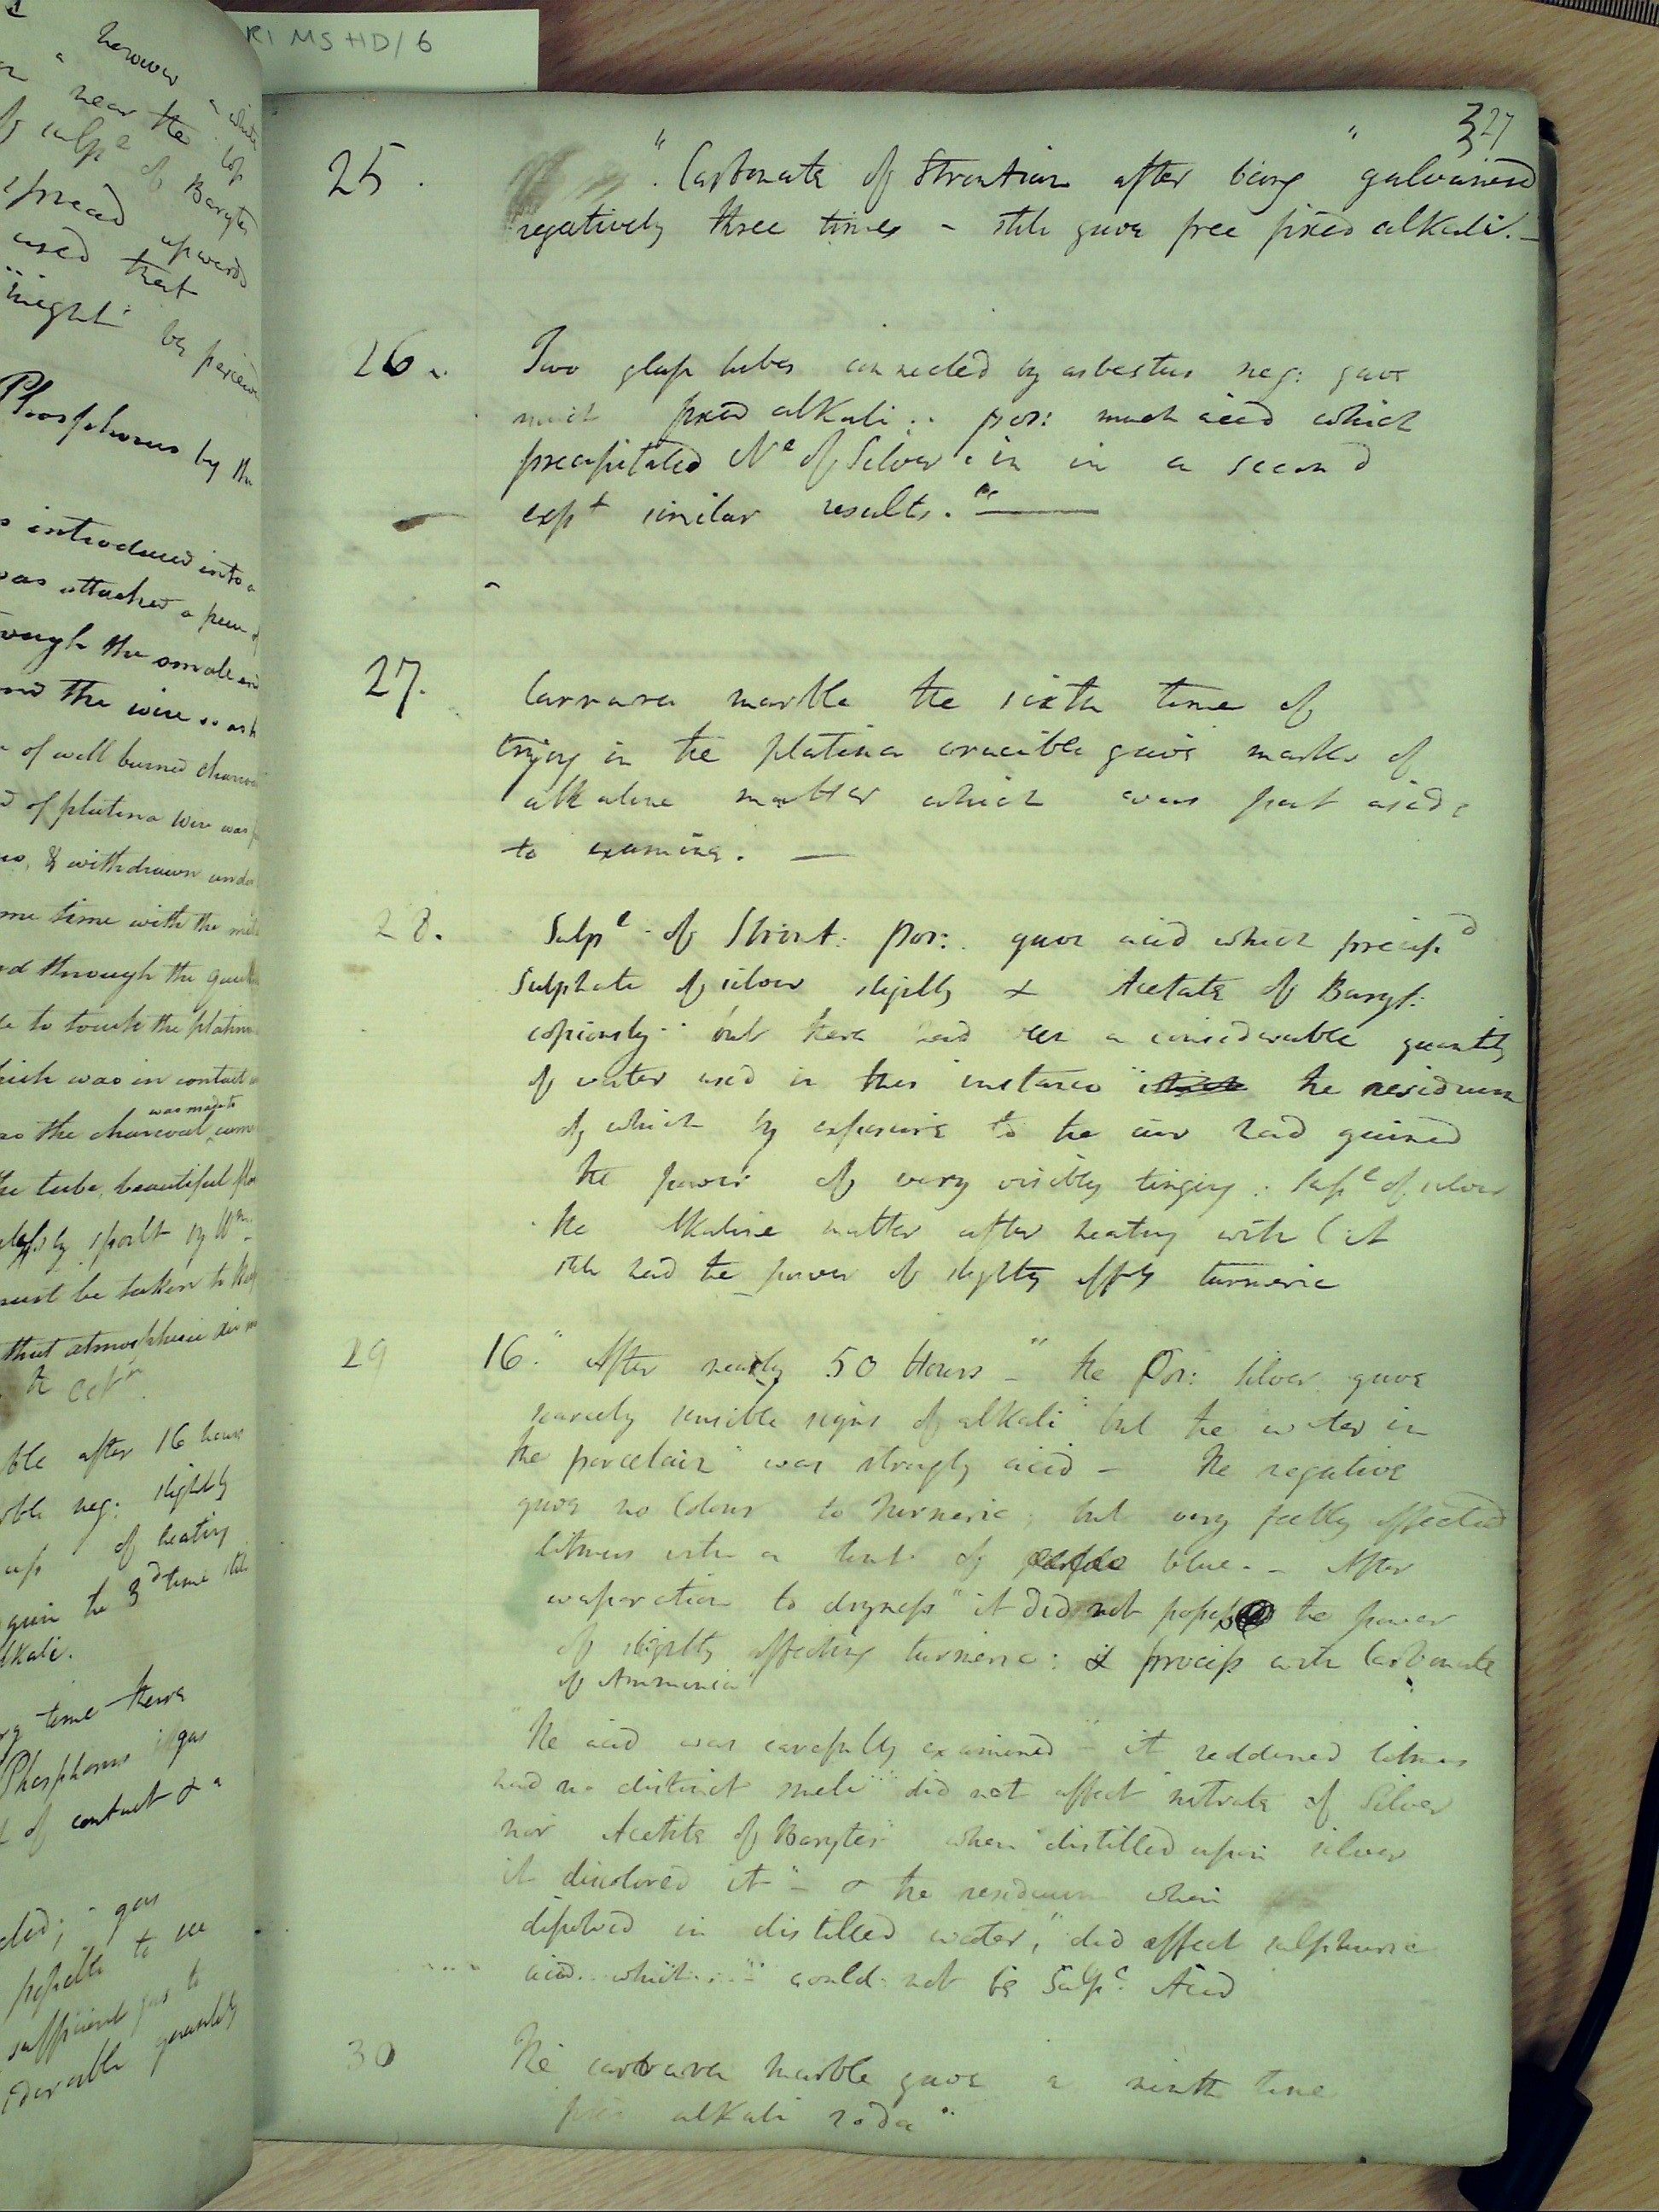 RI MS HD/6
however a white
near the top
of sulp^e of Barytes
spread upwards
used that
might be perceived
Phosphorus by the
introduced into a
was attached a piece of
through the small end
and the wire so as to
of well burned charcoal
of platina wire was
& withdrawn under
me time with the
through the
to touch the platina
which was in contact
was made to
so the charcoal come
the tube, beautiful
spoilt by W^m.
must be taken to keep
that atmospheric air
after 16 hours
neg: slightly
of heating
again the 3^d time still
alkali.
time there
Phosphorus gas
of contact & a
gas
possible to see
sufficient gas to
quantity
327
25. " Carbonate of Strontian after being " galvanised
negatively three times - still gave free fixed alkali. -
26. Two glass tubes connected by asbestus neg: gave
much fixed alkali: pos: much acid which
precipitated N^e of Silver: in in a second
exp^t similar results. " —
27. Carrara marble the sixth time of
trying in the platina crucible gave marks of
alkaline matter which was put aside
to examine. —
28. Sulp^e of Stront: pos: gave acid which precip^d
Sulphate of silver slightly & Acetate of Baryt:
copiously: but there had been a considerable quantity
of water used in this instance the residuum
of which by exposure to the air had gained
the power of very visibly tinging: Sulp^e of silver
the Alkaline matter after heating with C: A
still had the power of slightly affg turmeric
29 16. " After nearly 50 Hours - " the Pos: Silver gave
scarcely sensible signs of alkali " but the water in
the porcelain " was strongly acid - The negative
gave no Colour to turmeric, but very feebly affected
litmus with a tint of purple blue. - After
evaporation to dryness " it did not possess the power
of slightly affecting turmeric: & process with Carbonate
of Ammonia "
" The acid was carefully examined " it reddened litmus
had no distinct smell " did not affect nitrate of Silver
nor Acetite of Barytes " when distilled upon silver
it discolored it " - & the residuum when
dissolved in distilled water, " did affect sulphuric
acid which could not be Sulp^c. Acid
30 The carrara marble gave a ninth time
fixed alkali soda "